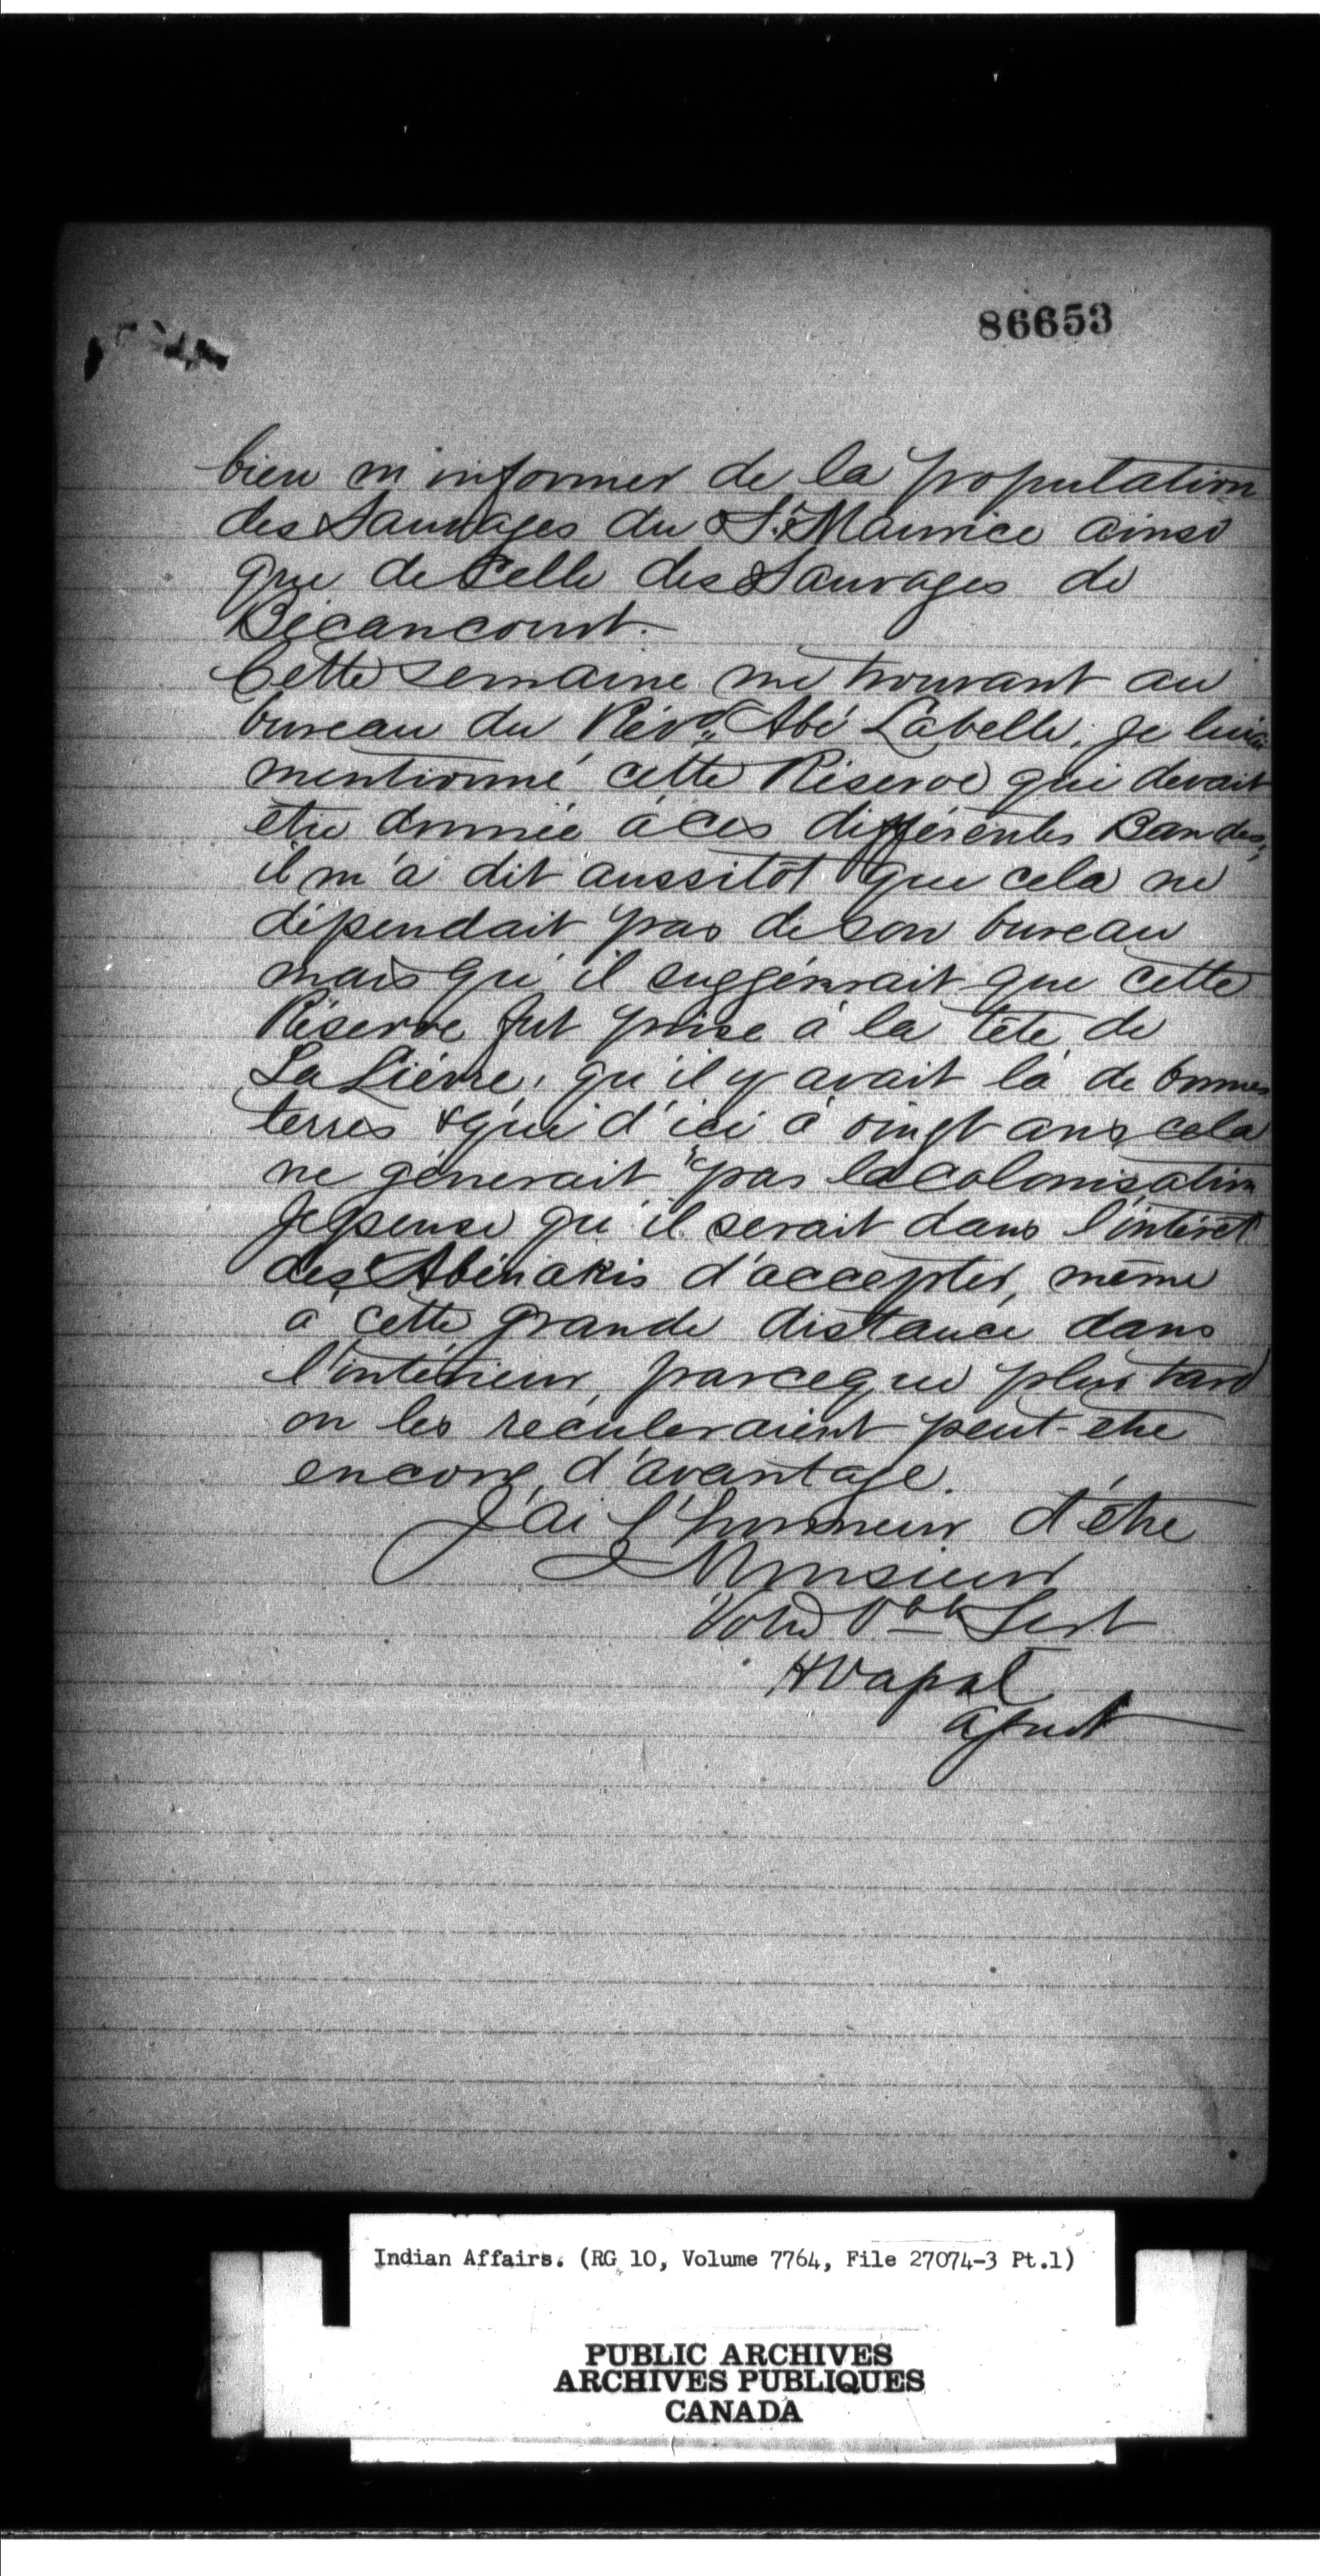 86653
bien m'informer de la population
des Sauvages du St. Maurice ainsi
que de celle des Sauvages de
Bécancourt.
Cette semaine me trouvant au
bureau du Révd. Abé Labelle, je lui ai
mentionné cette Réserve qui devait
être donnée à ces différentes Bandes,
il m'a dit aussitôt que cela ne
dépendait pas de son bureau
mais qu'il suggérerait que cette
Réserve fut prise à la tête de
La Lièvre, qu'il y avait là de bonnes
terres & que d'ici à vingt ans cela
ne gènerait pas la colonisation
Je pense qu'il serait dans l'intérêt
des Abénakis d'accepter, même
à cette grande distance dans
l'intérieur, parceque plus tard
on les reculeraient peut-être
encore d'avantage.
J'ai l'honneur d'être
Monsieur
Votre Obt Sert
H Vapal
agent
Indian Affairs. (RG 10, Volume 7764, File 27074-3 Pt.1)
PUBLIC ARCHIVES
ARCHIVES PUBLIQUES
CANADA